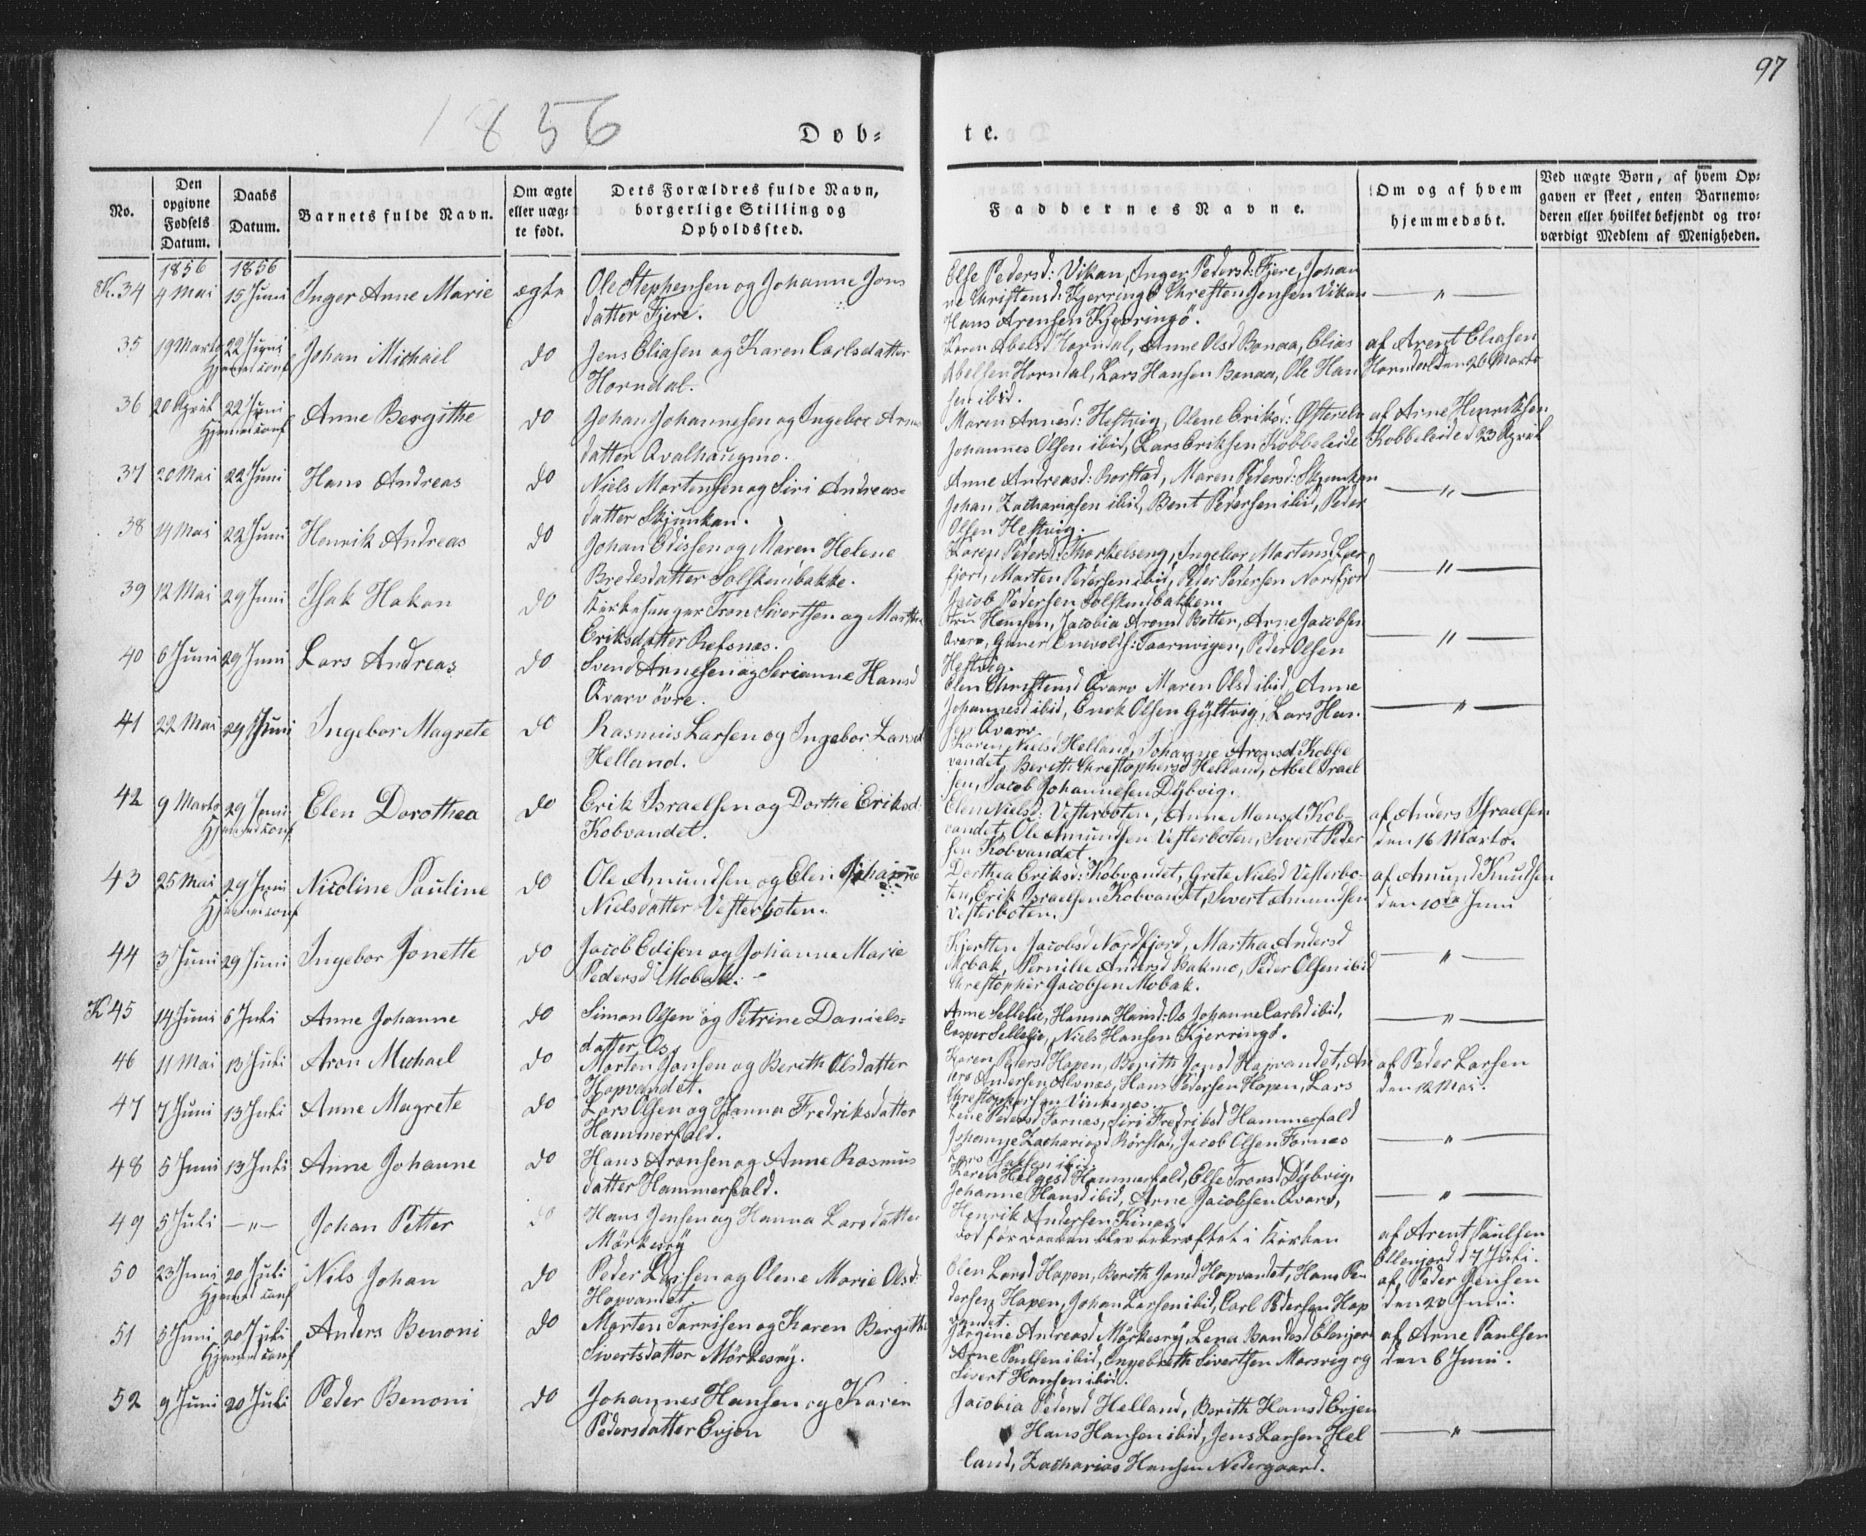 97
1856
Døb- te.
No.
Den opgivne Fødsels Datum.
Daabs Datum.
Barnets fulde Navn.
Om ægte eller uægte født.
Dets Forældres fulde Navn, borgerlige Stilling og Opholdssted.
Faddernes Navne.
Om og af hvem hjemmedøbt.
Ved uægte Børn, af hvem Opgaven er skeet, enten Barnemoderen eller hvilket bekjendt og troværdigt Medlem af Menigheden.
1856 1856
K. 34 4 Mai 15 Juni Inger Anne Marie ægte Ole Stephensen og Johanne Jons
datter Fjere.
Else Pedersd: Vikan, Inger Pedersd: Fjere, Johan
ne Christensd: Kjerringø Chresten Jensen Vikan
Hans Arensen Kjerringö. — " —
35 19 Marts 22 Juni Johan Michael do Jens Eliasen og Karen Carlsdatter
Hjemmed conf
Horndal.
Karen Abelsd Horndal, Anne Olsd Bonaa, Elias
Abelsen Horndal, Lars Hansen Bonaa, Ole Han
sen ibid.
af Arent Eliasen
Horndal den 26 Marts
36 20 April 22 Juni Anne Bergithe do Johan Johannesen og Ingebor Arne
Hjemmed conf
datter Qvalhaugmo.
Maren Arnesd: Heftvig, Olene Eriksd:
Johannes Olsen ibid, Lars Eriksen Kobbeleide
af Arne Henriksen
Kobbeleide d 23 April
37 20 Mai 22 Juni Hans Andreas do Niels Mortensen og Siri Andreas-
datter Skjunkan.
Anne Andreasd: Rorstad, Maren Pedersd: Skjunkan
Johan Zachariasen ibid, Bent Pedersen ibid, Peder
Olsen Heftvig. — " —
38 14 Mai 22 Juni Henrik Andreas do Johan Edissen og Maren Helene
Bredesdatter Solstenbakke.
Karen Pedersd: Thorkelseng, Ingebor Mortensd Leer
fjord, Morten Pedersen ibid, Peder Pedersen Nordfjord
Jacob Pedersen Solstenbakken. — " —
39 12 Mai 29 Juni Isak Hakon do Kirkesanger Tron Sivertsen og Martha
Eriksdatter Refsnæs.
Fru Hemsen, Jacobia Aronsd Botten, Arne Jacobsen
Qvarv, Guner Enevolds: Taarnvigen, Peder Olsen
Heftvig. — " —
40 6 Juni 29 Juni Lars Andreas do Svend Arnesen og Serianne Hansd
Qvarv övre.
Elen Christensd Qvarv Maren Olsd ibid, Anne
Johannesd ibid, Enok Olsen Gyltvig, Lars Han
sen Qvarv. — " —
41 22 Mai 29 Juni Ingebor Magrete do Rasmus Larsen og Ingebor Larsd
Helland.
Karen Nielsd Helland, Johanne Aronsd Kobbe
vandet, Bereth Chrestophersd Helland, Abel Israel
sen, Jacob Johannesen Dybvig.
42 9 Marts 29 Juni Elen Dorothea do Erik Israelsen og Dorthe Eriksd
Hjemmed conf
Kobvandet.
Elen Nielsd: Vesterboten, Anne Monsd Kob-
vandet, Ole Amundsen Vesterboten, Sivert Peder
sen Kobvandet.
af Anders Israelsen
den 16 Marts.
43 25 Mai 29 Juni Nicoline Pauline do Ole Amundsen og Elen Johanne
Hjemmed conf
Nielsdatter Vesterboten.
Dorthea Eriksd: Kobvandet, Grete Nielsd Vesterbo-
ten, Erik Israelsen Kobvandet, Sivert Amundsen
Vesterboten.
af Amund Knudsen
den 10de Juni
44 3 Juni 29 Juni Ingebor Jonette do Jacob Edisen og Johanna Marie
Pedersd Mobak.
Kjersten Jacobsd Nordfjord, Martha Andersd
Mobak, Pernille Andersd Bakmo, Peder Olsen ibid
Chrestopher Jacobsen Mobak. — " —
K 45 14 Juni 6 Juli Anne Johanne do Simon Olsen og Petrine Daniels-
datter Os.
Anne Sellelie, Hanna Hansd: Os, Johanne Carlsd ibid,
Casper Sellelie, Niels Hansen Kjerringö. — " —
46 11 Mai 13 Juli Aron Michael do Morten Jonsen og Bereth Olsdatter
Hopvandet.
Karen Pedersd Hopen, Berith Jonsd Hopvandet, An
ders Andersen Alvnæs, Hans Pedersen Hopen, Lars
Chrestophersen Vinkenæs.
af Peder Larsen
den 12 Mai.
47 7 Juni 13 Juli Anne Magrete do Lars Olsen og Hanna Fredriksdatter
Hammerfald.
Lene Pedersd Fornæs, Siri Fredriksd Hammerfald
Johanne Zachariasd Rörstad, Jacob Olsen Fornæs
— " —
48 5 Juni 13 Juli Anne Johanne do Hans Aronsen og Anne Rasmus
datter Hammerfald.
Karen Helgesd Hammerfald, Else Tronsd Dybvig.
Johanne Hansd ibid, Arne Jacobsen Qvarv,
Henrik Andersen Kines. — " —
49 5 Juli — " — Johan Petter do Hans Jensen og Hanna Larsdatter
Mörkesry
död för daaben blev bekræftet i Kirken
af Arent Paulsen
Ellenjord d 7 Juli.
50 23 Juni 20 Juli Nils Johan do Peder Larsen og Olene Marie Olsd:
Hjemmed conf
Hopvandet
Elen Larsd Hopen, Berith Jonsd Hopvandet, Hans Pe
dersen Hopen, Johan Larsen ibid, Carl Pedersen Hop
vandet.
af Peder Jensen
den 20 Juni.
51 5 Juni 20 Juli Anders Benoni do Morten Torrisen og Karen Bergithe
Hjemmed conf
Sivertsdatter Mörkesry.
Jörgine Andreasd Mörkesry, Lena Bondesd Elenjord
Arne Paulsen ibid, Engebreth Sivertsen Morsvig og
Sivert Hansen ibid.
af Arne Paulsen
den 6 Juni.
52 9 Juni 20 Juli Peder Benoni do Johannes Hansen og Karen
Pedersdatter Evjen
Jacobia Pedersd Helland, Berith Hansd Evjen
Hans Hansen ibid, Jens Larsen Hel
land, Zacharias Hansen Nedergaard. — " —